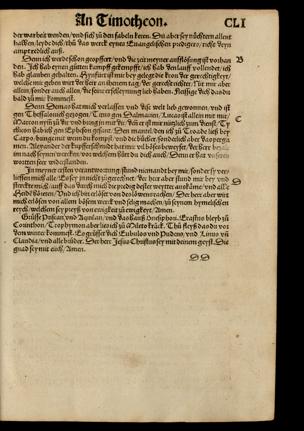 An Timotheon. CLI
der warheit wenden/ und sich zů den fabeln keren. Du aber sey nüchtern allent
halben/ leyde dich/ thů das werck eynes Euangelischen predigers/ richt deyn
ampt redlich auß.
Denn ich werde schon geopffert/ und die zeit meyner aufflösung ist vorhan
den. Ich hab eynen gůtten kampff gekempfft/ ich hab den lauff vollendet/ ich
hab glauben gehalten. Hynfurt ist mir bey gelegt die kron der gerechtigkeyt/
welche mir geben wirt der herr an ihenem tag/ der gerecht richter/ nit mir aber
allein/ sonder auch allen/ die seine erscheynung lieb haben. Fleyssige dich das du
bald zů mir kommest.
Denn Demas hat mich verlassen und dise welt lieb gewonnen/ und ist
gen Thessalonich gezogen/ Titus gen Dalmatien/ Lucas ist allein mit mir/
Marcon nym zů dir und bring in mit dir/ Denn er ist mir nützlich zum dienst/ Ty
chicon hab ich gen Epheson gesant. Den mantel/ den ich zů Troade ließ bey
Carpo/ bringe mit wenn du kompst/ und die bücher/ sonderlich aber das perga
men. Alexander der kupfferschmidt hat mir vil böses beweyset/ der herr bezale
im nach seynen wercken/ vor welchem hüt du dich auch/ Denn er hat unsern
worten seer widerstanden.
In meyner ersten verantworttung/ stund niemant bey mir/ sonder sy ver
liessen mich alle/ Es sey in nicht zůgerechnet/ der herr aber stund mir bey und
sterckte mich/ auff das durch mich die predig
Heyden hörten/ Und ich bin erlößt von des löwen rachen/ Der herr aber wirt
mich erlösen von allem bösem werck und selig machen/ zů seynem hymelischen
reych/ welchem sey preyß von ewigkeyt zů ewigkeyt/ Amen.
Grüsse Priscan/ und Aquilan/ und das hauß Onesiphori. Erastus bleyb zů
Corinthon/ Trophymon aber ließ ich zů Mileto kranck. Thů fleyß das du vor
dem winter kommest. Es grüsset dich Eubulos und Pudens/ und Linus und
Claudia/ und alle brüder. Der herr Jesus Christus sey mit deinem geyst. Die
gnad sey mit euch/ Amen.
B
C
D